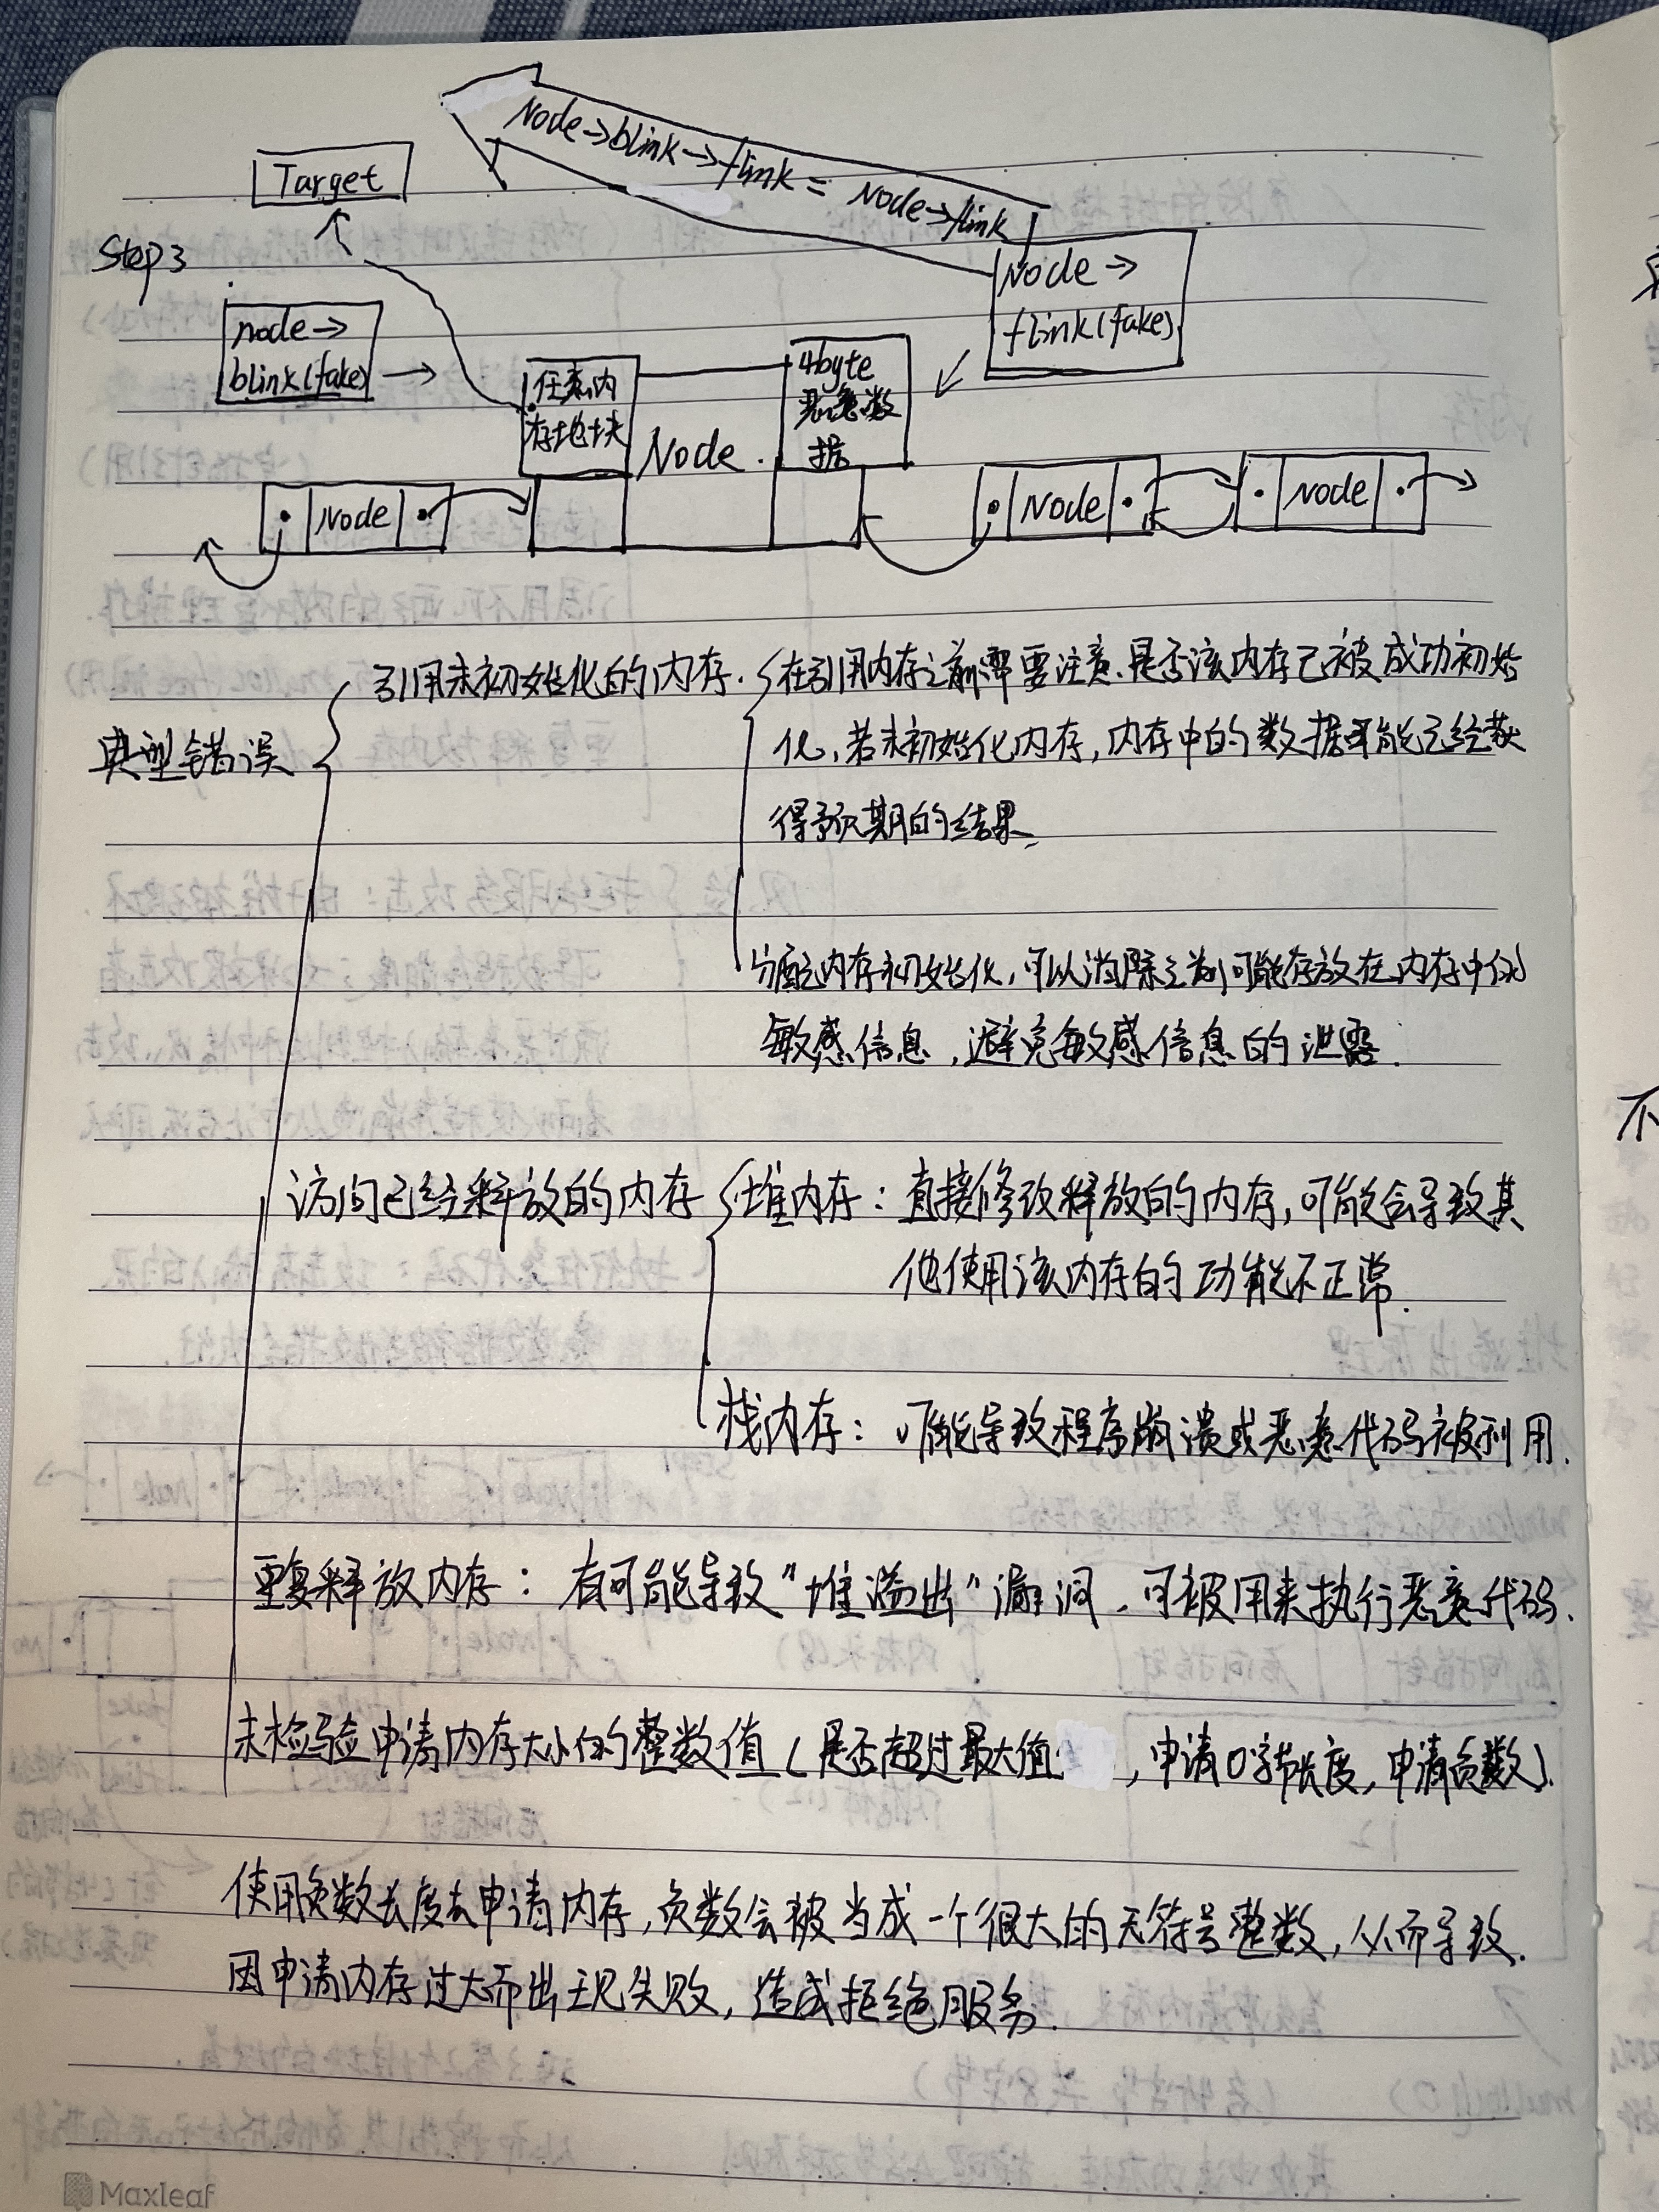 Node→blink→flink = Node→flink
Target
Step3
Node→
flink(fake)
node→
blink(fake)
任意内
存地块
4byte
恶意数
据
Node
Node
Node
Node
引用未初始化的内存.
在引用内存之前需要注意.是否该内存已被成功初始
典型错误
化,若未初始化内存,内存中的数据可能已经获
得预期的结果、
分配内存初始化,可以消除之前可能存放在内存中的
敏感信息,避免敏感信息的泄露.
访问已经释放的内存
堆内存:直接修改释放的内存,可能会导致其
他使用该内存的功能不正常.
栈内存:可能导致程序崩溃或恶意代码被利用.
重复释放内存:有可能导致"堆溢出"漏洞.可被用来执行恶意代码.
未检验申请内存大小的整数值(是否超过最大值,申请0字节长度,申请负数).
使用负数长度去申请内存,负数会被当成一个很大的无符号整数,从而导致.
因申请内存过大而出现失败,造成拒绝服务.
Maxleaf
不